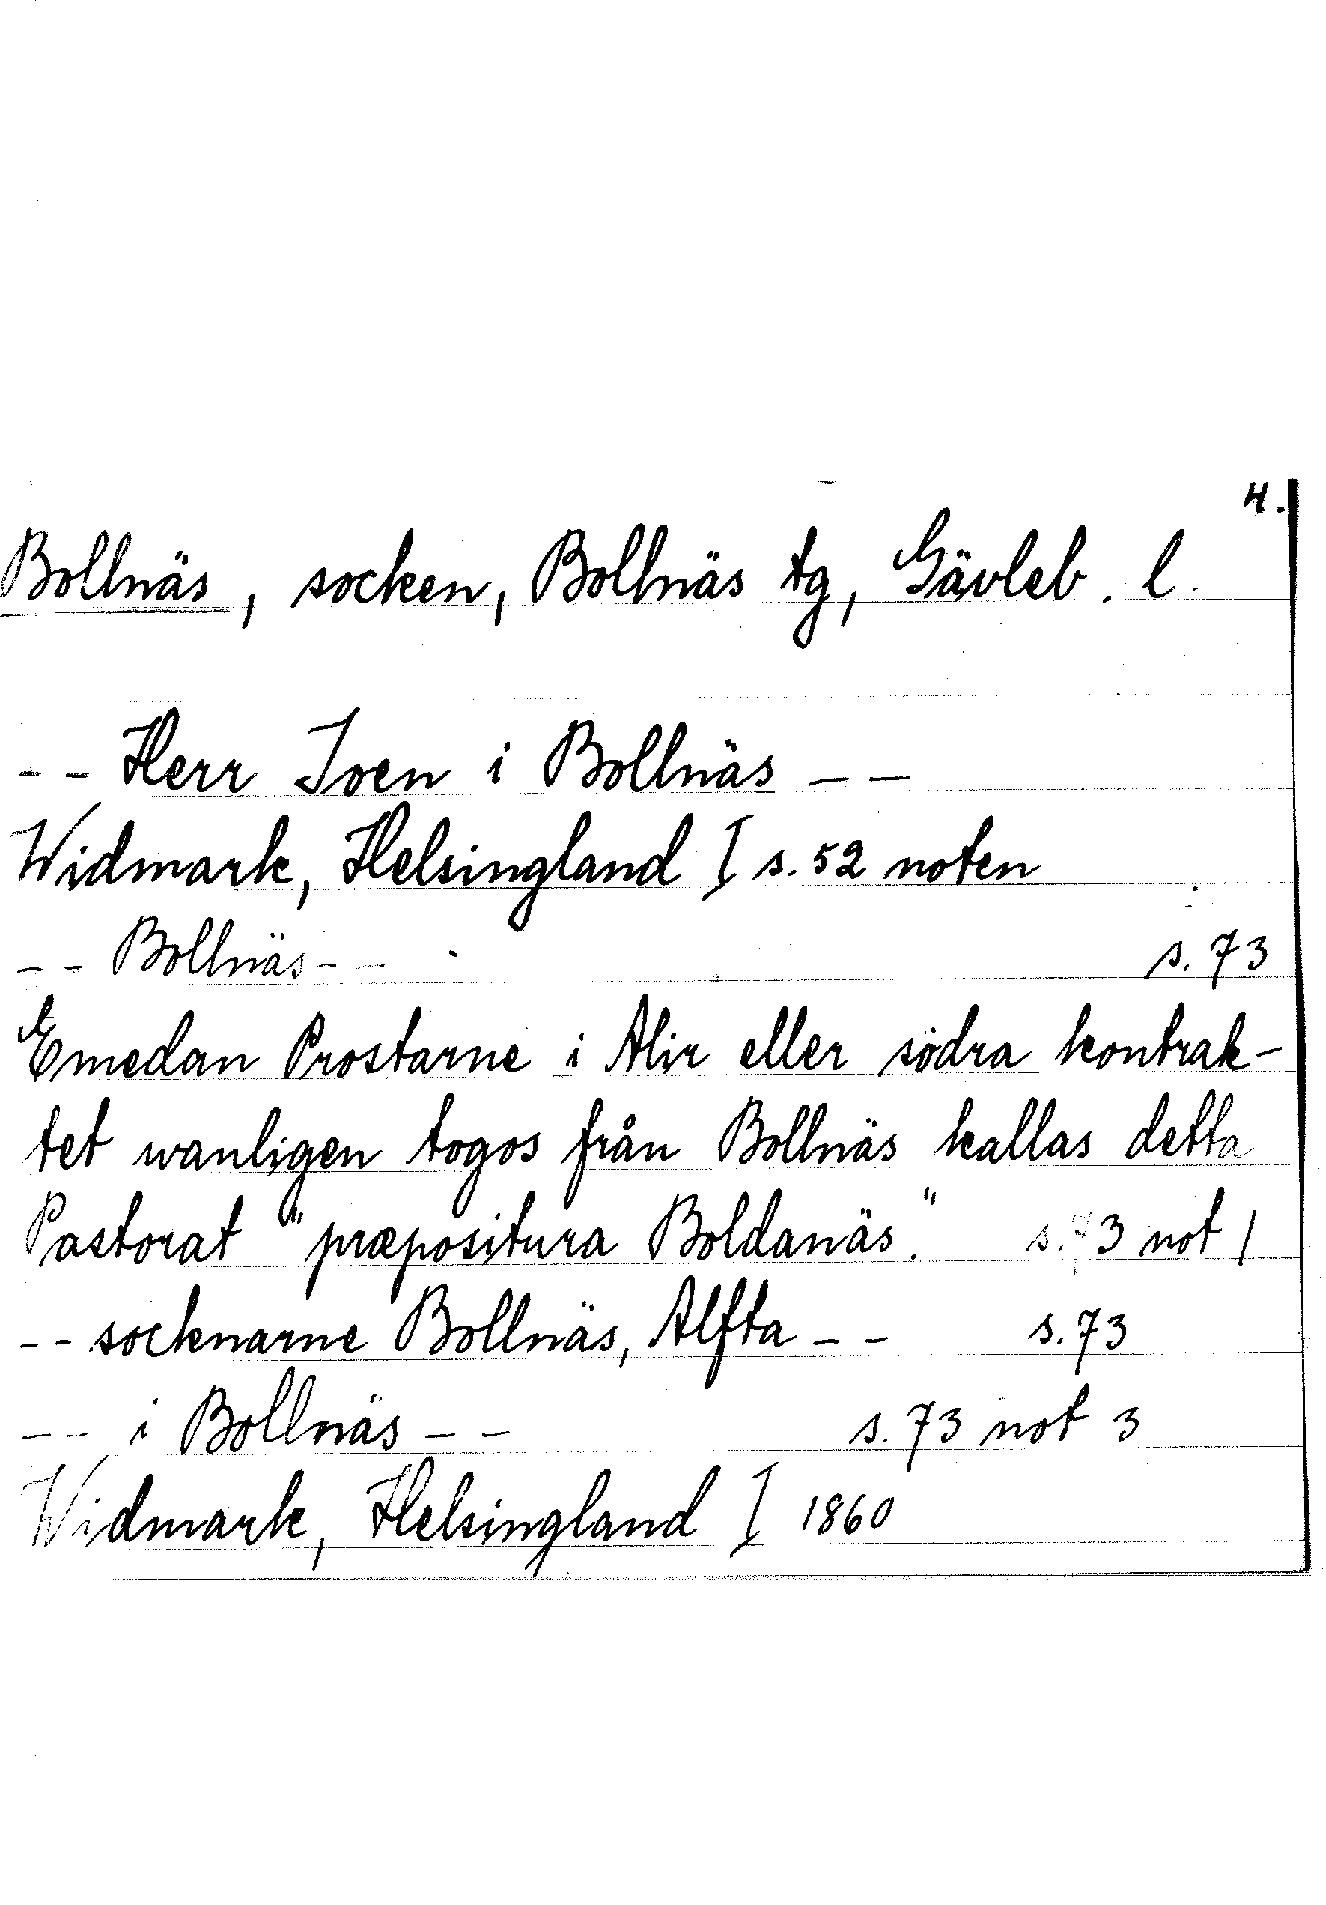 4.
Bollnäs, socken, Bollnäs tg, Gävleb. l.
-- Herr Iven i Bollnäs --
Widmark, Helsingland I s. 52 noten
-- Bollnäs -- s. 73
Emedan Prostarne i Alir eller södra kontrak-
tet wanligen togos från Bollnäs kallas detta
Pastorat "præpositura Boldanäs." s. 73 not 1
-- socknarne Bollnäs, Alfta -- s. 73
-- i Bollnäs -- s. 73 not 3
Widmark, Helsingland I 1860